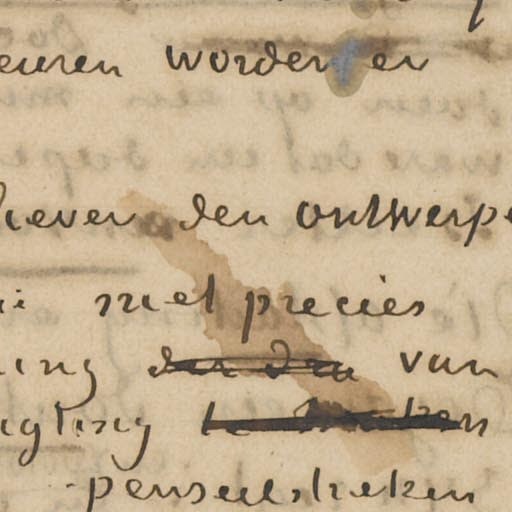 euren worden er
liever den ontwerpe
niet precies
ing van
gting
penseelstreken